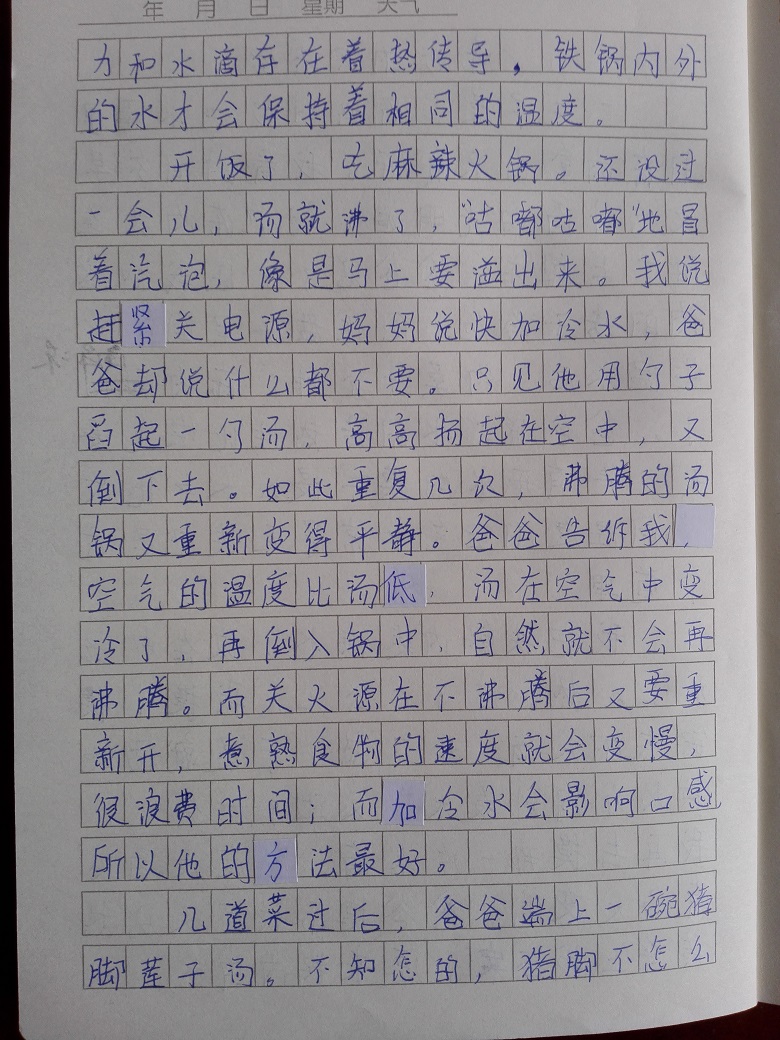 年 月 日 星期 天气
力和水滴存在着热传导，铁锅内外
的水才会保持着相同的温度。
开饭了，吃麻辣火锅。还没过
一会儿，汤就沸了，“咕嘟咕嘟”地冒
着汽泡，像是马上要溢出来。我说
赶紧关电源，妈妈说快加冷水，爸
爸却说什么都不要。只见他用勺子
舀起一勺汤，高高扬起在空中，又
倒下去。如此重复几次，沸腾的汤
锅又重新变得平静。爸爸告诉我，
空气的温度比汤低，汤在空气中变
冷了，再倒入锅中，自然就不会再
沸腾。而关火源在不沸腾后又要重
新开，煮熟食物的速度就会变慢，
很浪费时间；而加冷水会影响口感
所以他的方法最好。
几道菜过后，爸爸端上一碗猪
脚莲子汤。不知怎的，猪脚不怎么